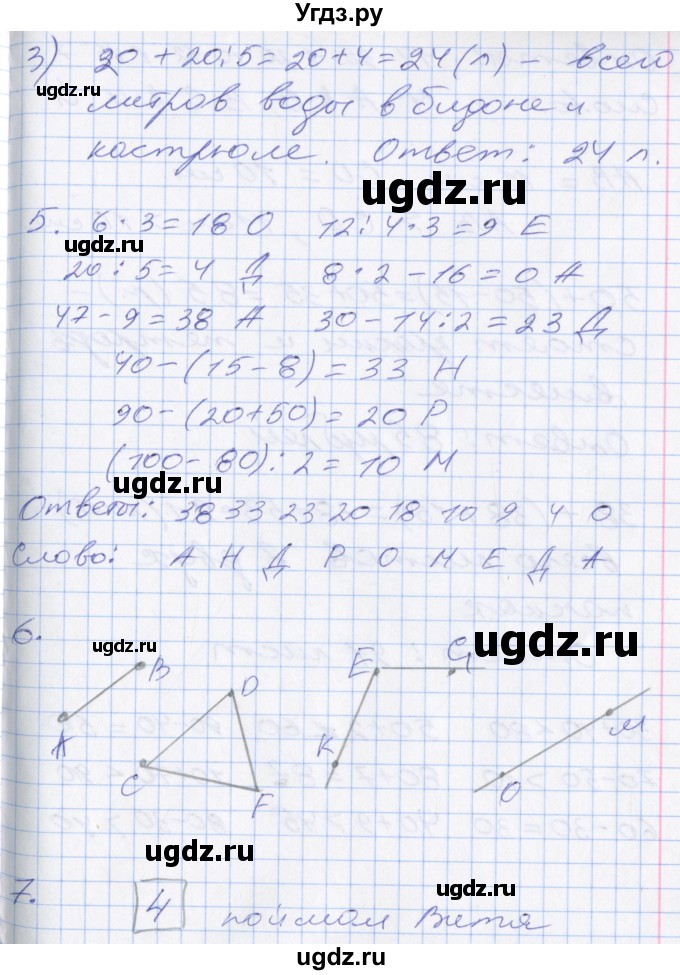 Угдз.ру
3) 20 + 20:5 = 20+4 = 24 (л) - всего
ugdz.ru
литров воды в бидоне и
кастрюле. Ответ: 24 л.
ugdz.ru
5. 6·3=18 О 12:4·3=9 Е
20:5=4 Д 8·2-16=0 А
47-9=38 А 30-14:2=23 Д
40-(15-8)=33 Н
90-(20+50)=20 Р
(100-80):2=10 М
ugdz.ru
Ответы: 38 33 23 20 18 10 9 4 0
Слово: А Н Д Р О М Е Д А
6.
ugdz.ru
ugdz.ru
B
E
G
D
A
K
M
C
F
O
ugdz.ru
ugdz.ru
7. 4 поймал Витя
ugdz.ru